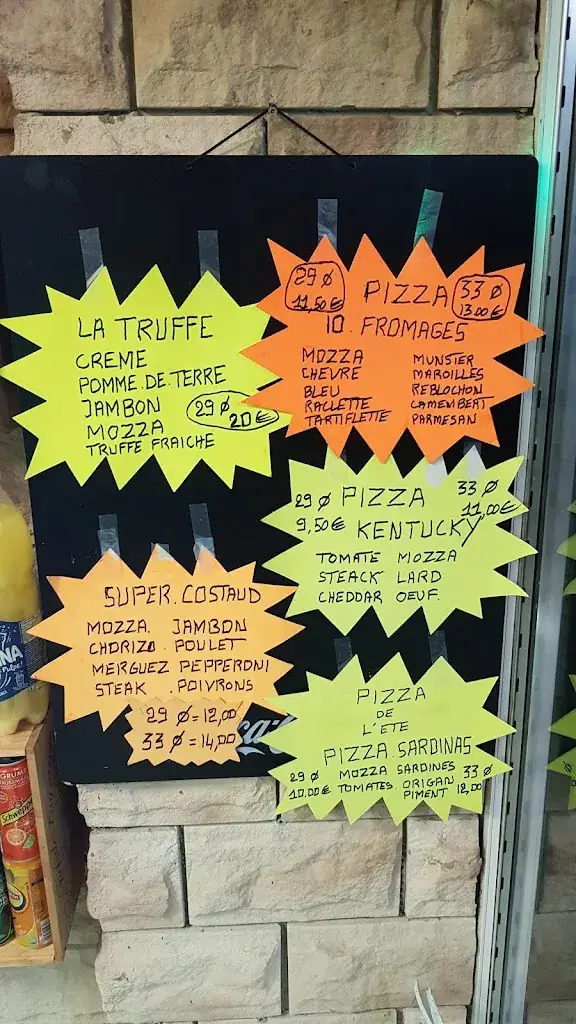 LA TRUFFE
CREME
POMME.DE.TERRE
JAMBON
MOZZA
TRUFFE FRAICHE
29 Ø
20€
29 Ø
11,50€
PIZZA
33 Ø
13.00€
10. FROMAGES
MOZZA
CHEVRE
BLEU
RACLETTE
TARTIFLETTE
MUNSTER
MAROILLES
REBLOCHON
CAMEMBERT
PARMESAN
29 Ø PIZZA 33 Ø
9,50€ KENTUCKY 11,00€
TOMATE MOZZA
STEACK LARD
CHEDDAR OEUF.
SUPER.COSTAUD
MOZZA. JAMBON
CHORIZO POULET
MERGUEZ PEPPERONI
STEAK .POIVRONS
29 Ø = 12,00
33 Ø = 14,00
PIZZA
DE
L'ETE
PIZZA.SARDINAS
29 Ø MOZZA SARDINES 33 Ø
10.00€ TOMATES ORIGAN
PIMENT 12,00
Schweppes